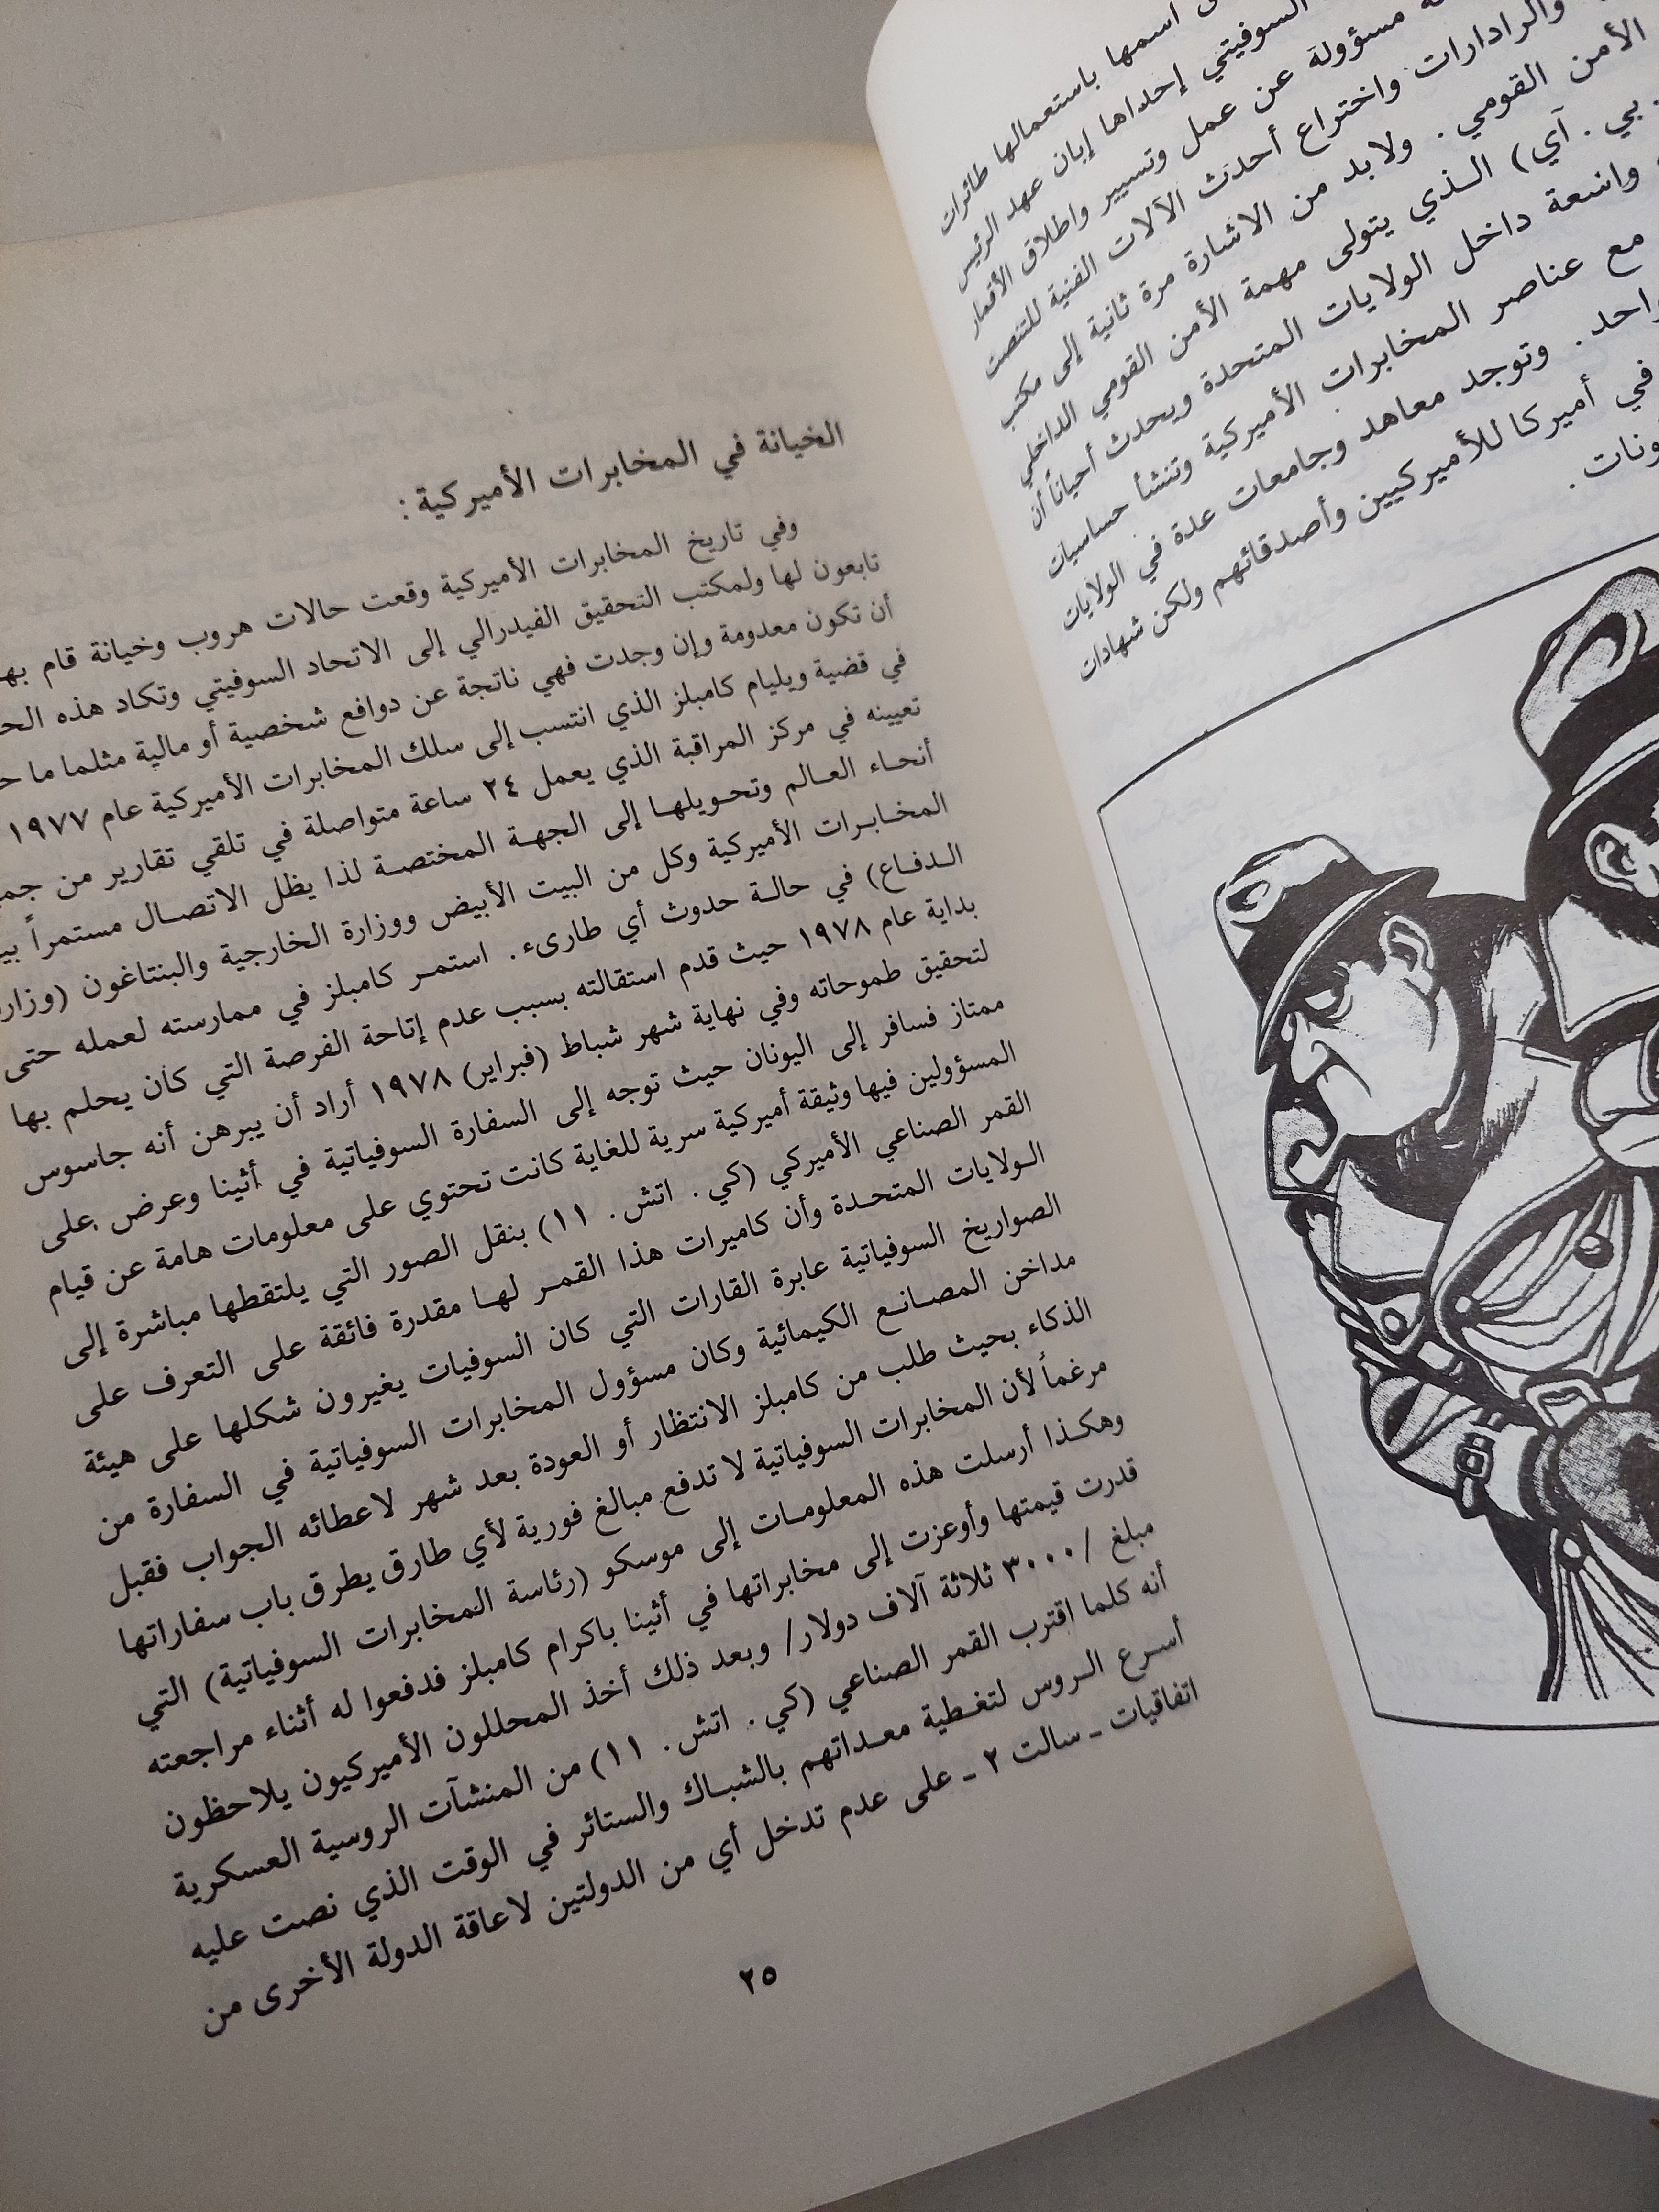 اسمها باستعمالها طائرات
السوفيتي إحداها إبان عهد الرئيس
مسؤولة عن عمل وتسيير واطلاق الأقمار
والرادارات واختراع أحدث الآلات الفنية للتنصت
الأمن القومي . ولا بد من الاشارة مرة ثانية إلى مكتب
بي . آي) الـذي يتولى مهمة الأمن القومي الداخلي
واسعة داخل الولايات المتحدة ويحدث أحياناً أن
مع عناصر المخابرات الأميركية وتنشأ حساسيات
وتوجد معاهد وجامعات عدة في الولايات
في أميركا للأميركيين وأصدقائهم ولكن شهادات
الخيانة في المخابرات الأميركية :
وفي تاريخ المخابرات الأميركية وقعت حالات هروب وخيانة قام
تابعون لها ولمكتب التحقيق الفيدرالي إلى الاتحاد السوفيتي وتكاد هذه
أن تكون معدومة وإن وجدت فهي ناتجة عن دوافع شخصية أو مالية مثلما ما
في قضية ويليام كامبلز الذي انتسب إلى سلك المخابرات الأميركية عام ١٩٧٧
تعيينه في مركز المراقبة الذي يعمل ٢٤ ساعة متواصلة في تلقي تقارير من
أنحـاء العـالم وتحـويلهـا إلى الجهـة المختصـة لذا يظل الاتصـال مستمراً
المخـابـرات الأميركية وكل من البيت الأبيض ووزارة الخارجية والبنتاغون
الـدفـاع) في حالـة حدوث أي طارىء . استمـر كامبلز في ممارسته لعمله حتى
بداية عام ١٩٧٨ حيث قدم استقالته بسبب عدم إتاحة الفرصة التي كان يحلم بها
لتحقيق طموحاته وفي نهاية شهر شباط (فبراير) ١٩٧٨ أراد أن يبرهن أنه جاسوس
ممتاز فسافر إلى اليونان حيث توجه إلى السفارة السوفياتية في أثينا وعرض على
المسؤولين فيها وثيقة أميركية سرية للغاية كانت تحتوي على معلومات هامة عن قيام
القمر الصناعي الأميركي (كي . اتش . ١١) بنقل الصور التي يلتقطها مباشرة إلى
الـولايات المتحـدة وأن كاميرات هذا القمـر لهـا مقدرة فائقة على التعرف على
الصواريخ السوفياتية عابرة القارات التي كان السوفيات يغيرون شكلها على هيئة
مداخن المصـانـع الكيمائية وكان مسؤول المخابرات السوفياتية في السفارة من
الذكاء بحيث طلب من كامبلز الانتظار أو العودة بعد شهر لاعطائه الجواب فقبل
مرغماً لأن المخابرات السوفياتية لا تدفع مبالغ فورية لأي طارق يطرق باب سفاراتها
وهكـذا أرسلت هذه المعلومـات إلى موسكو (رئاسة المخابرات السوفياتية) التي
قدرت قيمتها وأوعزت إلى مخابراتها في أثينا باكرام كامبلز فدفعوا له أثناء مراجعته
مبلغ /٣٠٠٠ ثلاثة آلاف دولار/ وبعد ذلك أخذ المحللون الأميركيون يلاحظون
أنه كلما اقترب القمر الصناعي (كي . اتش . ١١) من المنشآت الروسية العسكرية
أسـرع الـروس لتغـطية معـداتهم بالشبـاك والستائر في الوقت الذي نصت عليه
اتفاقيات ـ سالت ٢ ـ على عدم تدخل أي من الدولتين لاعاقة الدولة الأخرى من
٢٥